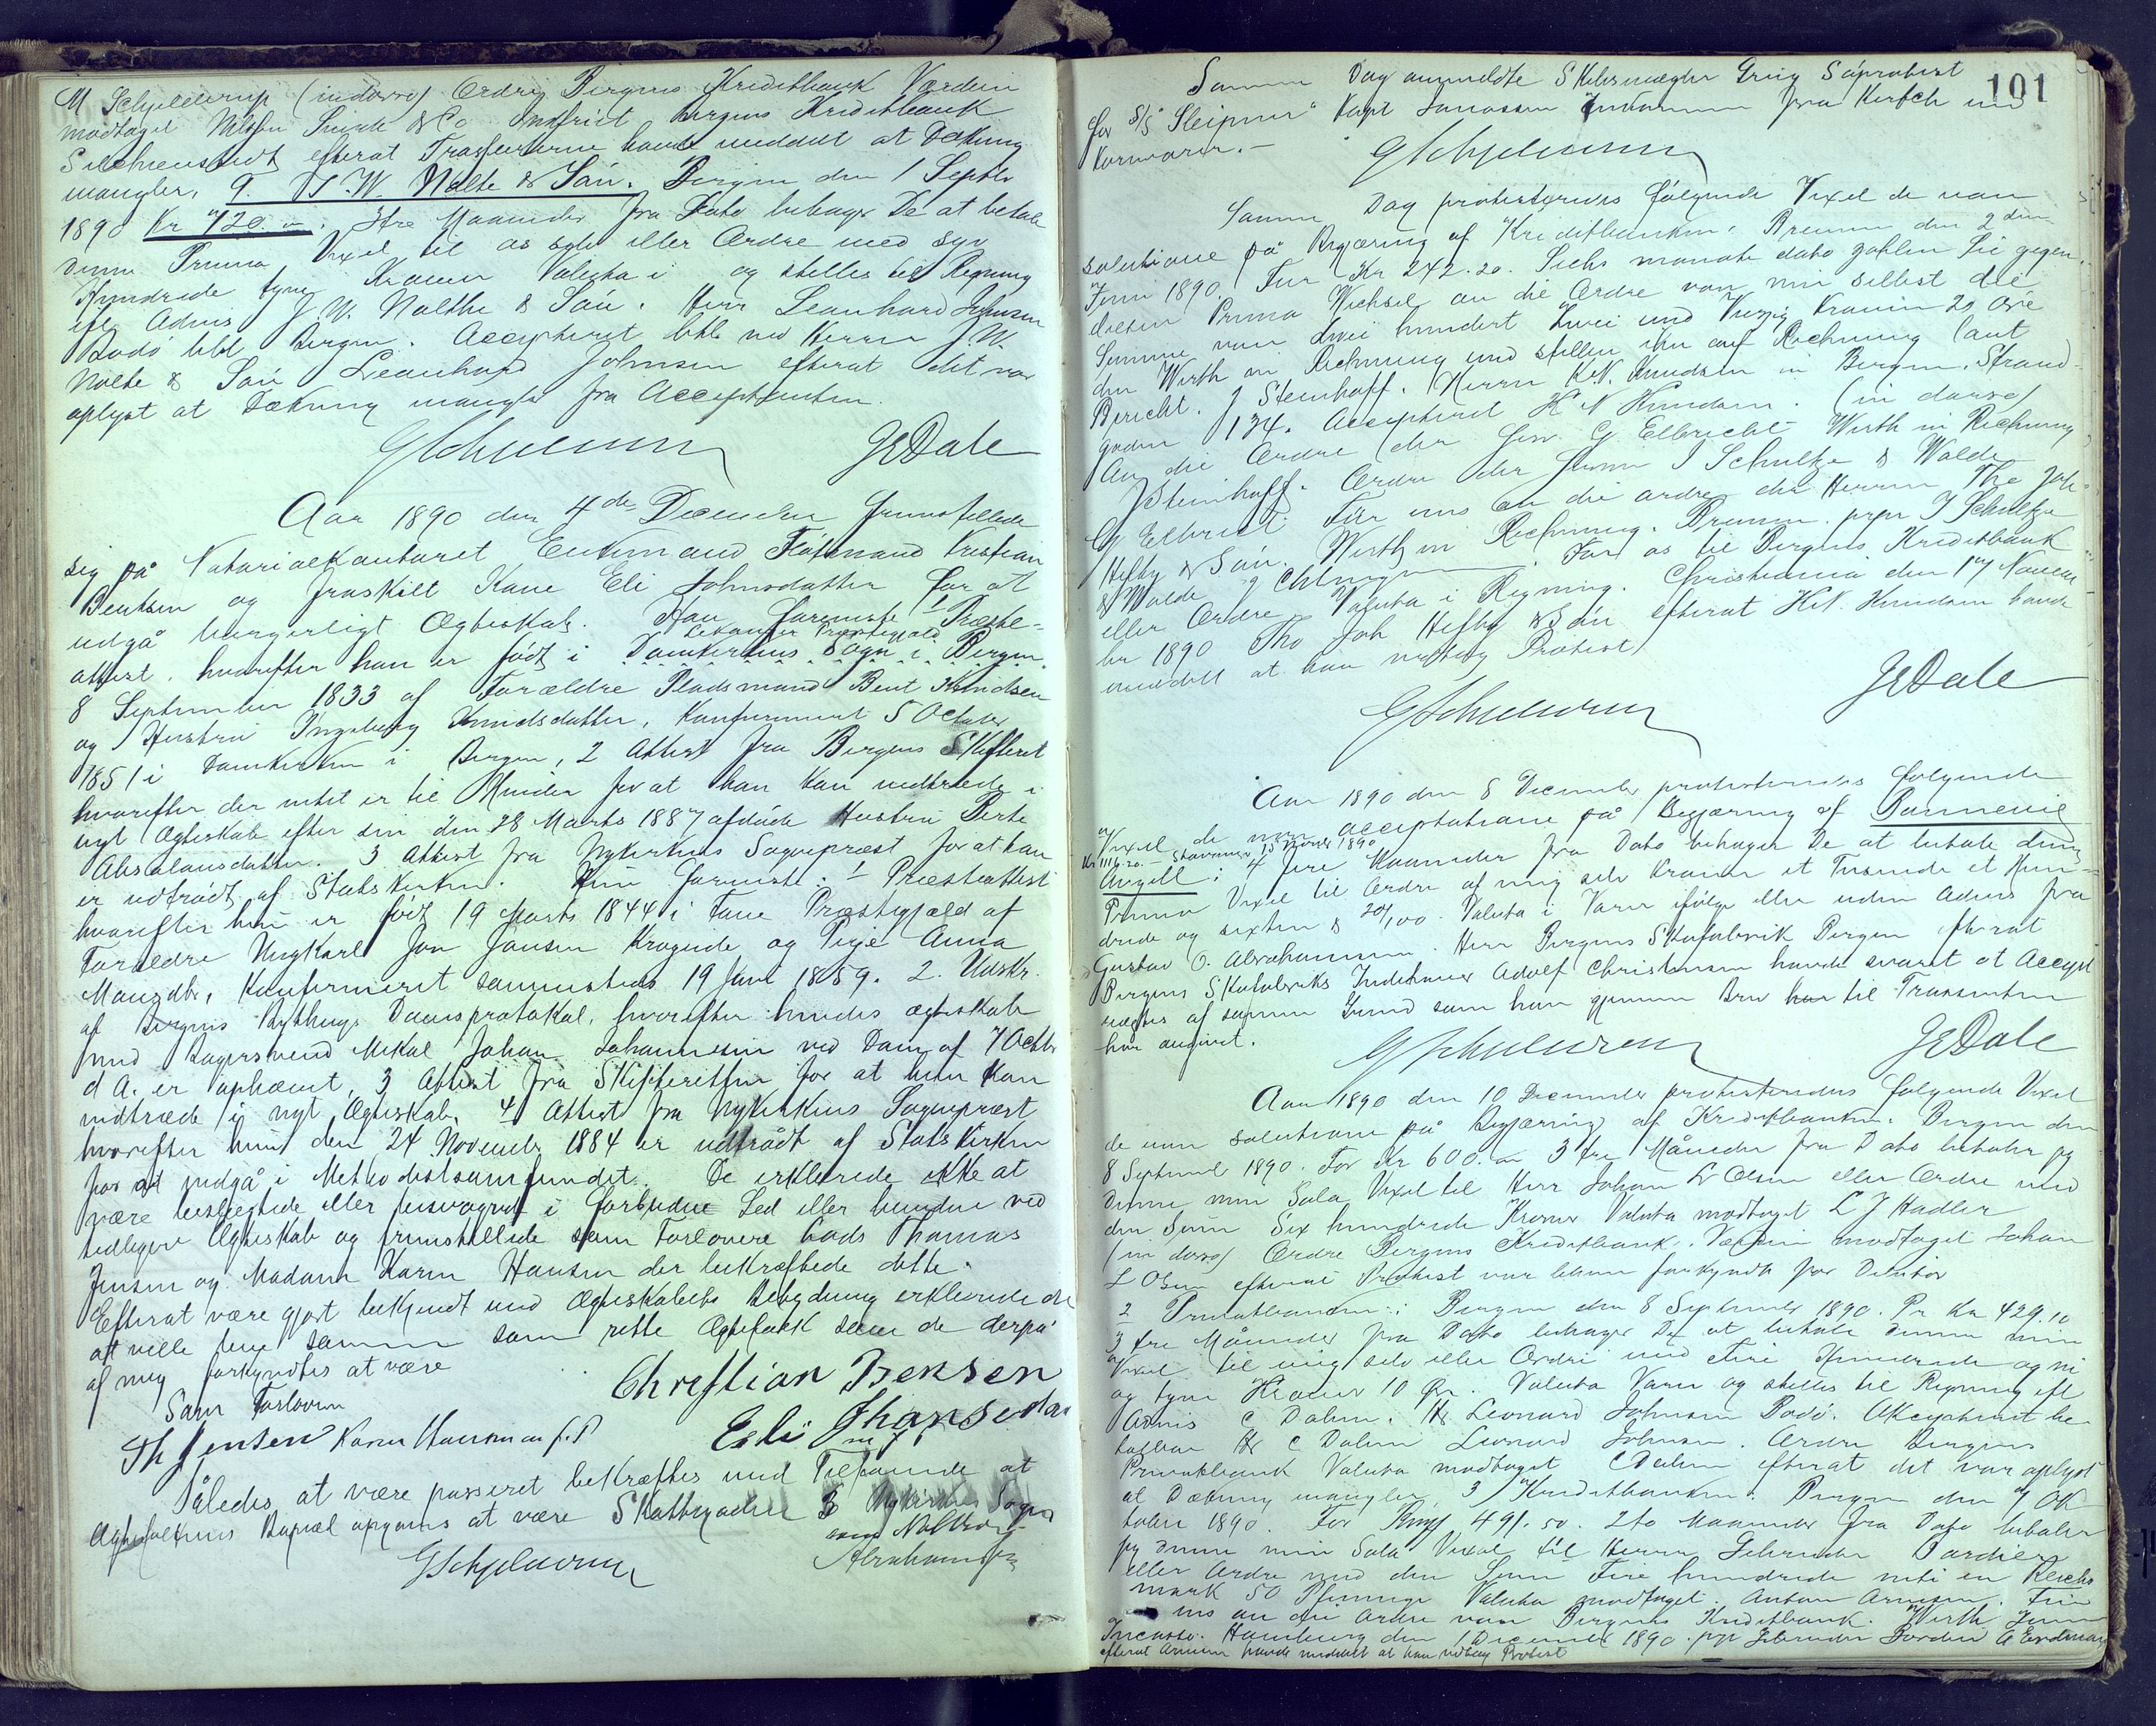 M Schjelderup (indorso) Ordre Bergens Kreditbank Værdien
modtaget Nilsen & Co Bergens Kreditbank
efterat Trassenterne havde meddelt at Dækning
mangler, 9. J. W. Nolte & Søn. Bergen den 1 Septbr
1890 Kr 720.—. Tre Maaneder fra Dato behager De at betale
denne Prima Vexel til os selv eller Ordre med syv
Hundrede tyve Kroner Valuta i og stilles til Regning
ifl Advis J. W. Nolthe & Søn. Herr Leonhard Johnsen
Bodö Bergen. Accepteret btbl ved Herrer J. W.
Nolte & Søn Leonhard Johnsen efterat det var
oplyst at Dækning mangler fra Acceptanten.
GSchjelderup JEDale
Aar 1890 den 4de December fremstillede
sig på Notarialkontoret Enkemand Kristian
Bentsen og fraskilt Kone Eli Johnsdatter for at
indgå borgerligt Ægteskab. Han foreviste 1 Præste-
Præstegjæld
attest, hvorefter han er født i Domkirkens Sogn i Bergen
8 September 1833 af Forældre Pladsmand Bent Knudsen
og Hustru Ingeborg Knudsdatter, Konfirmeret 5 October
1851 i Domkirken i Bergen, 2 Attest fra Bergens Skifteret
hvorefter der intet er til Hinder for at han kan indtræde i
nyt Ægteskab efter sin den 28 Marts 1887 afdøde Hustru Berte
Absalonsdatter. 3 Attest fra Nykirkens Sognepræst for at han
er udtrådt af Statskirken. Hun foreviste: 1 Præsteattest
hvorefter hun er født 19 Marts 1844 i Fane Præstegjæld af
Forældre Ungkarl Jon Jonsen Krogeide og Pige Anna
Monsdtr, Konfirmeret sammesteds 19 Juni 1859. 2. Udskr.
af Bergens Bythings Domsprotokol, hvorefter hendes ægteskab
med Bagersvend Mikal Johan Johannesen ved Dom af 7 Octbr
d A. er ophævet, 3 Attest fra Skifteretten for at hun kan
indtræde i nyt Ægteskab. 4 Attest fra Nykirkens Sognepræst
hvorefter hun den 24 November 1884 er udtrådt af Statskirken
for at indgå i Methodistsamfundet. De erklærede ikke at
være beslægtede eller besvogrede i forbudne Led eller bundne ved
tidligere Ægteskab og fremstillede som Forlovere Thomas
Jensen og Madam Karen Hansen der bekræftede dette.
Efterat være gjort bekjendt med Ægteskabets Betydning erklærede de
at ville leve sammen som rette Ægtefolk som de derpå
af mig forkyndtes at være
Som Forlovere Christian Bensen
Th Jensen Karen Hansen m f. P Eli Jhansedar
Således at være passeret bekræftes med Tilføiende at
Ægtefolkenes Bopæl opgaves at være 3 Nykirkens Sogn
GSchjelderup Abrahamsen
101
Samme Dag anmeldte Skibsmægler Grieg Söprotest
for S/S "Sleipner" Kapt Janossen fra Kertch med
Kornvarer.—
GSchjelderup
Samme Dag protesteredes følgende Vexel de non
solutione på Begjæring af Kreditbanken. Bremen den 2 den
Juni 1890 Für Kr 242.20. Sechs monate dato zahlen Sie gegen
diesen Prima Wechsel an die Ordre von mir selbst die
Summe von zwei hundert zwei und Vierzig Kronen 20 Øre
den Werth in Rechnung und stellen ihn auf Rechnung laut
Bericht. J Steinhoff. Herrn K. N. Knudsen in Bergen. Strand-
gaden 134. Accepteret K N Knudsen. (in dorso)
An die Ordre der Herr G Elbrecht Werth in Rechnung
J Steinhoff. Ordre der Herren J Schultze & Walde
G Elbrecht. Für uns an die ordre der Herren Tho Joh
Heftye & Søn. Werth in Rechnung. Bremen. ppa J Schultze
& Walde. For os til Bergens Kreditbank
eller Ordre. Valuta i Regning. Christiania den 17 Novem
ber 1890 Tho Joh Heftye & Søn efterat K. N. Knudsen havde
meddelt at han vedtog Protest
GSchjelderup JEDale
Aar 1890 den 8 December protesteredes følgende
Vexel de non acceptatione på Begjæring af Konnevie
Kr 1116.20.— Stavanger 15 Novbr 1890
Angell: 4 fire Maaneder fra Dato behager De at betale denne
Prima Vexel til Ordre af mig selv Kroner et Tusinde et Hun-
drede og sexten & 20/100. Valuta i Varer ifølge eller uden Advis fra
Gustav O. Abrahamsen. Herr Bergens Skofabrik Bergen efterat
Bergens Skofabriks Indehaver Adolf Christensen havde svaret at Accept
nægtes af samme Grund som han gjennem Brev til Trassenten
har angivet.
GSchjelderup JEDale
Aar 1890 den 10 December protesteredes følgende Vexel
de non solutione på Begjæring af Kreditbanken. Bergen den
8 September 1890. For Kr 600.— 3 tre Måneder fra Dato betaler jeg
denne min Sola Vexel til Herr Johan L Olsen eller Ordre med
den Sum Six hundrede Kroner Valuta modtaget L J Hadler
(in dorso) Ordre Bergens Kreditbank. Værdien modtaget Johan
L Olsen efterat Protest var bleven forkyndt for Debitor
2 Privatbanken: Bergen den 8 September 1890. Pr Kr 429.10
3 tre Måneder fra Dato behager De at betale denne min
Vexel til mig selv eller Ordre med fire Hundrede og ni
og tyve Kroner 10 Øre. Valuta Varer og stilles til Regning efl
Advis C Dahm. Hr Leonard Johnsen Bodö. Akcepteret be-
talbar Hr C Dahm Leonard Johnsen. Ordre Bergens
Privatbank Valuta modtaget C Dahm efterat det var oplyst
at Dækning mangler, 3) Kreditbanken: Bergen den 7 Ok-
tober 1890. For Rmk 491.50. 2to Maaneder fra Dato betaler
jeg denne min Sola Vexel til Herrer Gebruder Bardien
eller Ordre med den Sum Fire hundrede niti en Reichs
mark 50 Pfennige Valuta modtaget. Anton Arnesen. Für
uns an die Ordre von Bergens Kreditbank. Werth zum
Incasso. Hamburg den 1 December 1890. ppa Gebruder Bardien
efterat Arnesen havde meddelt at han vedtog Protest